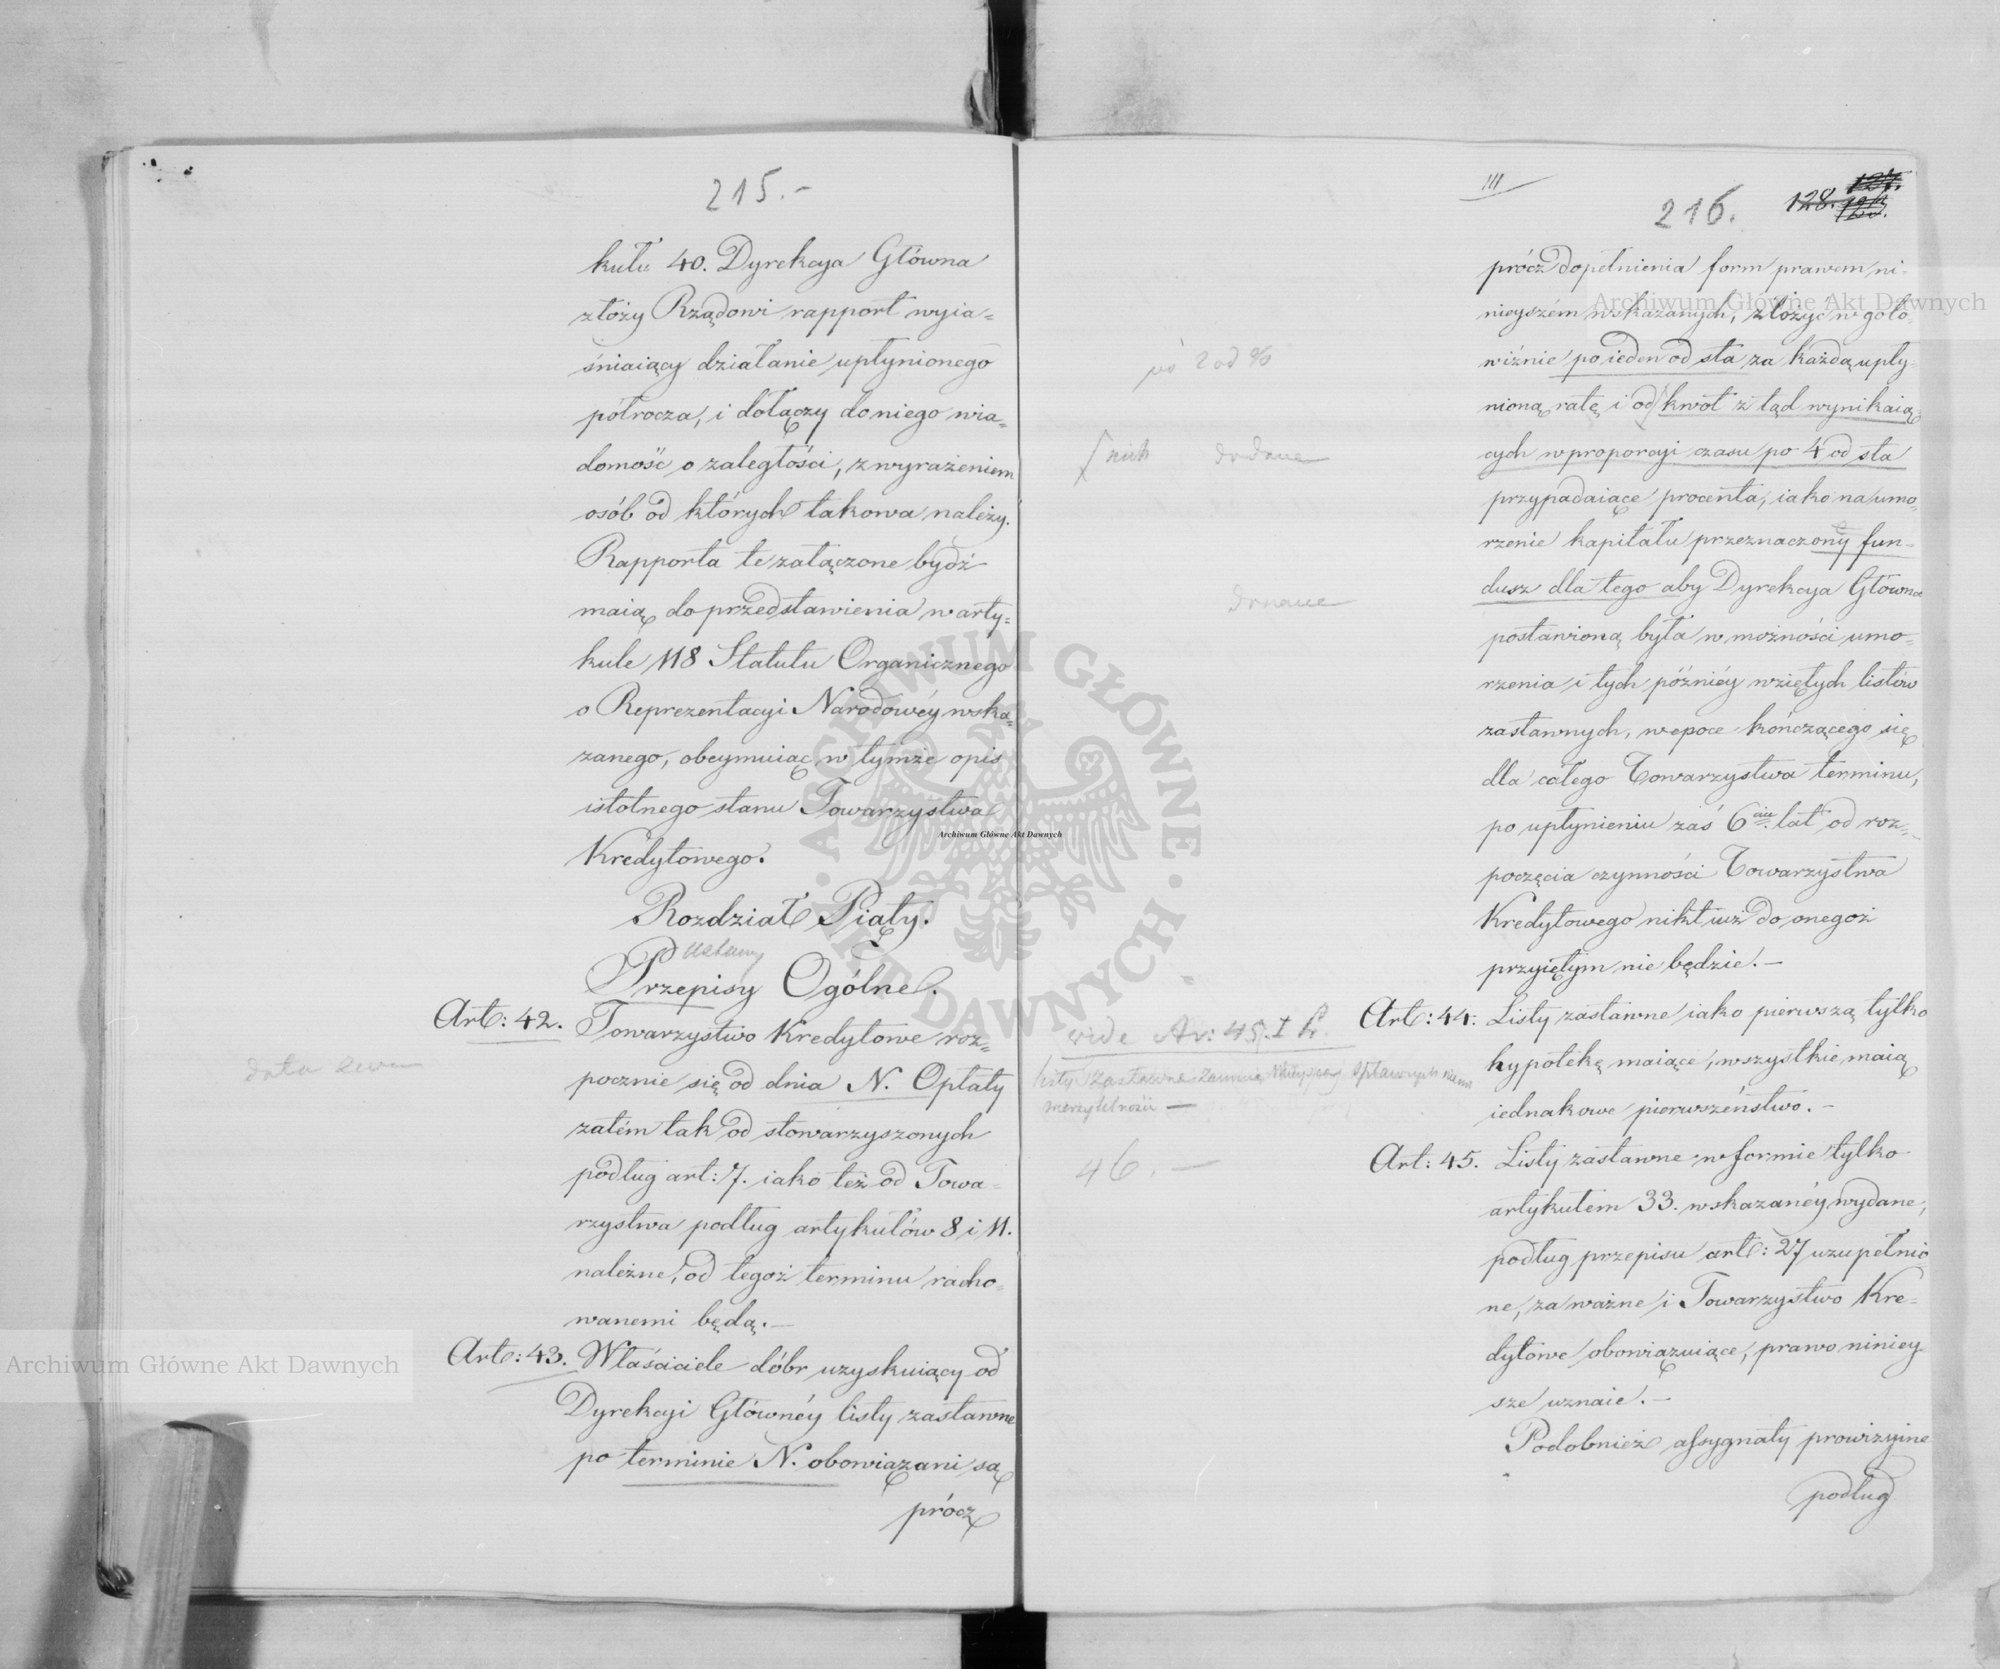 215.-
kułu 40. Dyrekcya Główna
złoży Rządowi rapport wyia=
śniaiący działanie upłynionego
półrocza, i dołączy do niego wia=
domość o zaległości, z wyrażeniem
osób od których takowa należy.
Rapporta te załączone bydź
maią do przedstawienia w arty=
kule 118 Statutu Organicznego
o Reprezentacyi Narodowéy wska=
zanego, obeymuiąc w tymże opis
istotnego stanu Towarzystwa
Kredytowego.
Rozdział Piąty.
Ustawy
Przepisy Ogólne.
Art: 42. Towarzystwo Kredytowe roz=
pocznie się od dnia N. Opłaty
zatém tak od stowarzyszonych
podług art: 7. iako też od Towa=
rzystwa podług artykułów 8 i 11.
należne, od tegoż terminu racho=
wanemi będą.-
Art: 43. Właściciele dóbr uzyskuiący od
Dyrekcyi Głównéy listy zastawne
po terminie N. obowiązani są
prócz
data
III
216. 128. 127.
prócz dopełnienia form prawem ni=
nieyszém wskazanych, złożyć w goto=
wiźnie po ieden od sta za każdą upły=
nioną ratę i od kwot z tąd wynikaią=
cych w proporcyi czasu po 4 od sta
przypadaiące procenta, iako na umo=
rzenie kapitału przeznaczony fun=
dusz dla tego aby Dyrekcya Główna
postawioną była w możności umo=
rzenia i tych późniéy wziętych listów
zastawnych, w epoce kończącego się
dla całego Towarzystwa terminu,
po upłynieniu zaś 6ciu lat od roz=
poczęcia czynności Towarzystwa
Kredytowego nikt iuż do onegoż
przyiętym nie będzie.-
Art: 44. Listy zastawne iako pierwszą tylko
hypotekę maiące, wszystkie maią
iednakowe pierwszeństwo.-
Art: 45. Listy zastawne w formie tylko
artykułem 33. wskazanéy wydane,
podług przepisu art: 27 uzupełnio=
ne, za ważne i Towarzystwo Kre=
dytowe obowiązuiące, prawo niniey=
sze uznaie.-
Podobnież assygnaty prowizyine
podług
po 2 od %
dodane
vide Ar: 45. I
listy zastawne
46.-
Archiwum Główne Akt Dawnych
Archiwum Główne Akt Dawnych
Archiwum Główne Akt Dawnych
ARCHIWUM GŁÓWNE AKT DAWNYCH